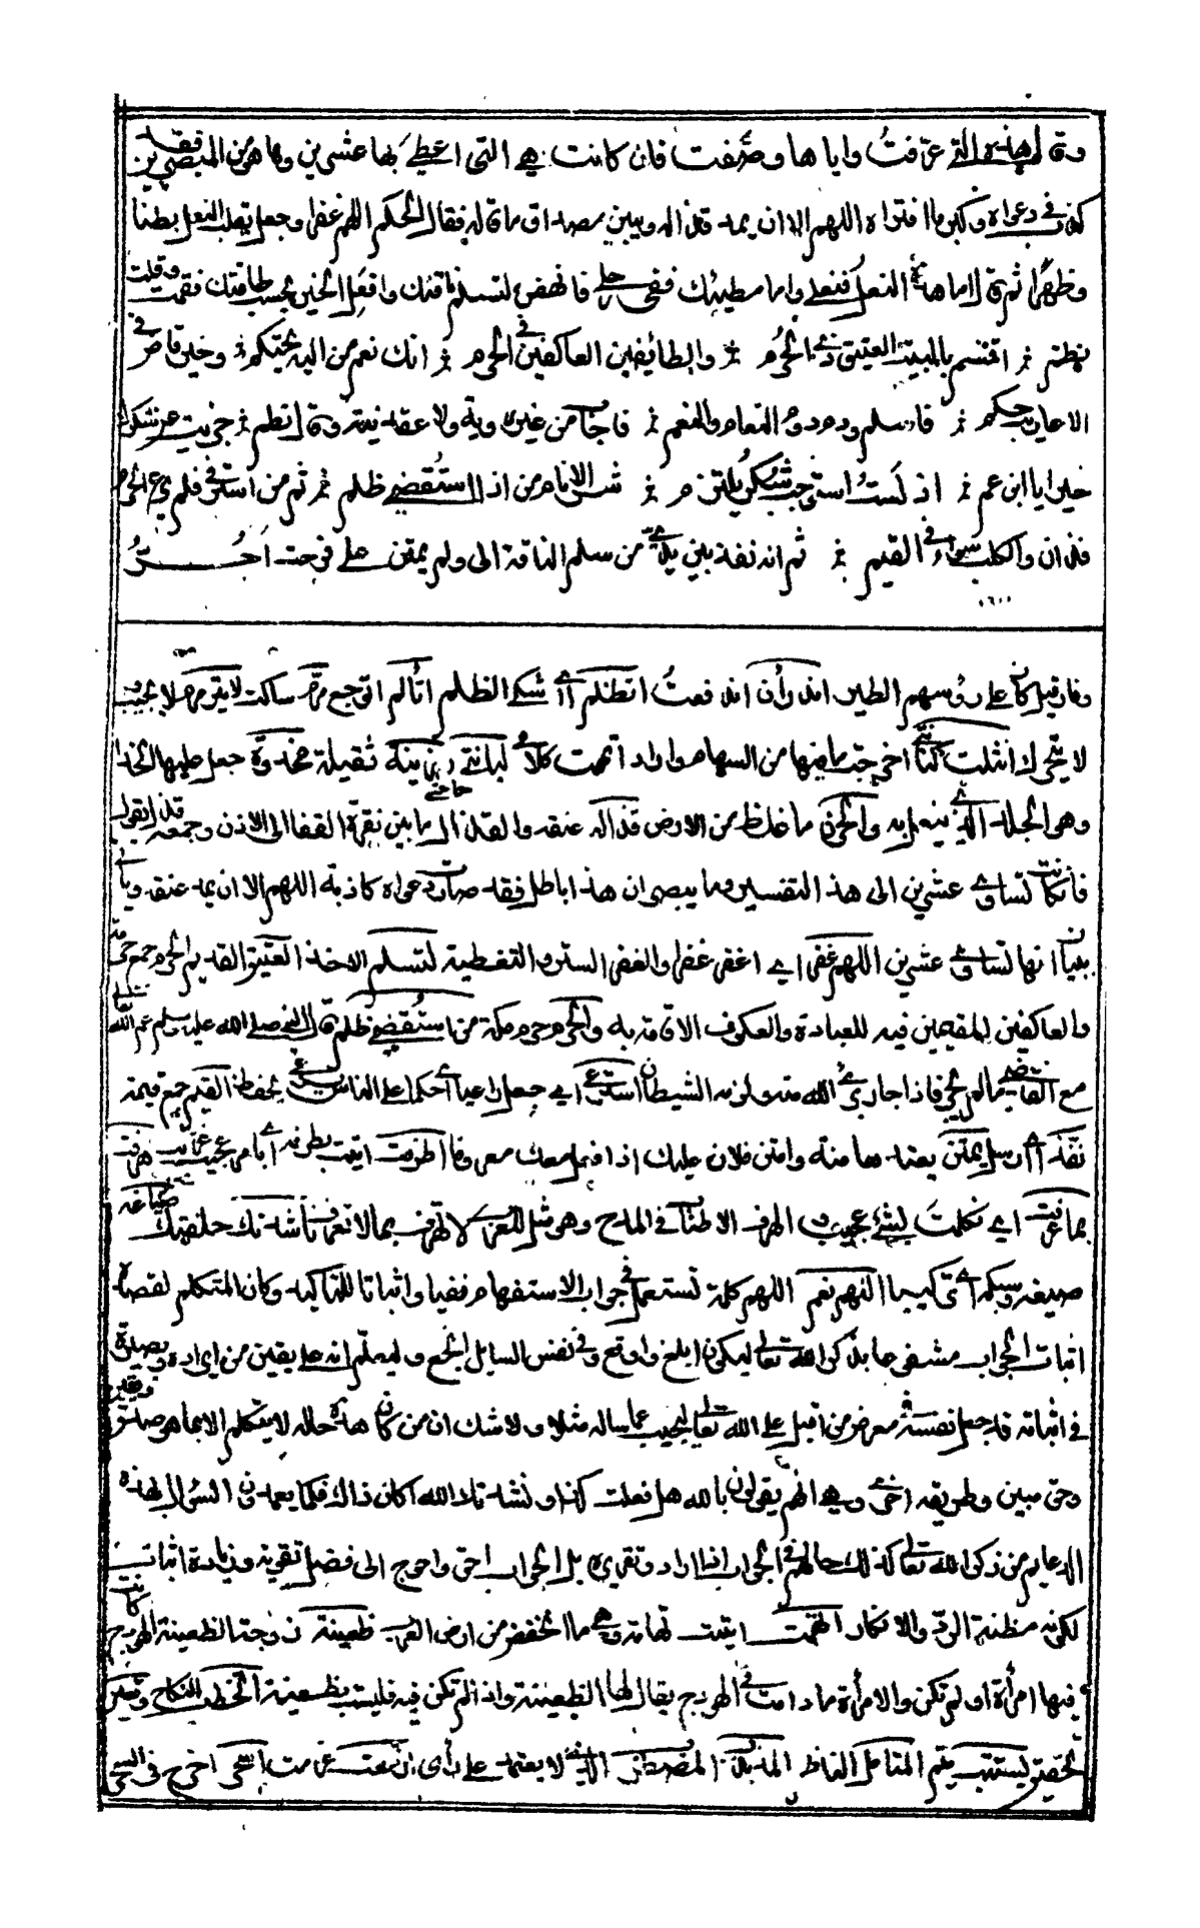 وقال هذه التي عرفت واياها وصفت فان كانت هي التي اعطي بها عشرين وها هو من المبصرين فقد
كذب في دعواه وكبر ما افتراه اللهم الا ان يمد قذاله ويبين مصداق ما قاله فقال الحكم اللهم غفرا وجعل يقلب النعل بطنا
وظهرا ثم قال اما هذه النعل فنعلي واما مطيتك ففي رحلي فانهض لتسلم ناقتك وافعل الخير بحسب طاقتك فقمت وقلت
نظم اقسم بالبيت العتيق ذي الحرم والطائفين العاكفين في الحرم انك نعم من اليه يحتكم وخير قاض في
الاعاريب حكم فاسلم ودم دوم النعام والنعم فاجاب من غير روية ولا عقد نية وقال نظم جزيت عن شكرك
خيرا يا ابن عم اذ لست استوجب شكرا يلتزم شر الانام من اذا استقضي ظلم ثم من استرعي فلم يرع الحرم
فذان والكلب سواء في القيم ثم انه نفذ بين يدي من سلم الناقة الي ولم يمتن علي فرحت اجر
وقار قيل كان على رؤسهم الطير اندرأت اندفعت اتظلم اي اشكي الظلم اتألم اتوجع مرم ساكت لا يترمرم لا يجيب و
لا يتحرك انثلت كنانتي اخرجت ما فيها من السهام واراد اتممت كلامي لباناتي حاجتي رزينة ثقيلة محذوة جعل عليها الحذاء
وهو الجلد الذي ينعل به والحزن ما غلظ من الارض قذاله عنقه والقذال ما بين نقرة القفا الى الاذن وجمعه قذل يقول
فان كانت تساوي عشرين الى هذا التفسير وما يبصر ان هذا باطل فقد صارت دعواه كاذبة اللهم الا ان يمد عنقه ويأتي
بيانا انها تساوي عشرين اللهم غفرا اي اغفر غفرا والغفر الستر والتغطية لتسلم الاخذ العتيق القديم الحرم جمع حرمة
والعاكفين المقيمين فيه للعبادة والعكوف الاقامة به والحرم حرم مكة من استقضي ظلم قال النبي صلى الله عليه وسلم ان الله تعالى
مع القاضي ما لم يجر فاذا جار برئ الله منه ولزمه الشيطان استرعي اي جعل راعيا اي حكما على الناس يرعي يحفظ القيم جمع قيمة
نفذ اي ارسل يمتن يعتد ها منة وامتن فلان عليك اذا فعل معك معروفا اطرفت اتيت بطرفة اي بامر عجيب غرائب هرفت
بما عرفت اي تكلمت بشيء عجيب و الهرف الاطناب في المدح وهو مثل للعرب لا تهرف بما لا تعرف ناشدتك حلفتك صياغة
صيغه وسبكه اي تركيبا اللهم نعم اللهم كلمة تستعمل في جواب الاستفهام نفيا واثباتا للتاكيد وكان المتكلم لقصده
اثبات الجواب مشفوعا بذكر الله تعالى ليكون ابلغ واوقع في نفس السايل انجع وليعلم انه على يقين من ايراده وبصيرة
في اثباته قد جعل نفسه في معرض من اقبل على الله تعالى ليجيب عما ساله مثلا ولا شك ان من كان هذه حاله لا يتكلم الا بما هو صدق ويقين
وحق مبين وطريقه اخرى وهي انهم يقولون بالله هل فعلت كذا ونشدتك الله اكان ذاك فكما يعمدون السؤال بهذه
الدعايم من ذكر الله تعالى كذلك حالهم في الجواب اذا اراد وتقريره بل الجواب احق واحوج الى فضل تقوية وزيادة اثبات
لكونه مظنة الرد والانكار اتهمت اتيت تهامة وهي ما انخفض من ارض العرب ظعينة زوجة الظعينة الهودج كانت
فيها امرأة او لم تكن والامرأة ما دامت في الهودج يقال لها الظعينة واذا لم تكن فيه فليست بظعينة الخطب النكاح وتيسر